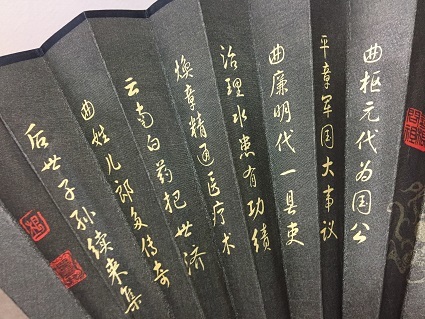 曲枢元代为国公
平章军国大事议
曲廉明代一县吏
治理水患有功绩
焕章精通医疗术
云南白药把世济
曲姓儿郎多传奇
后世子孙续来集